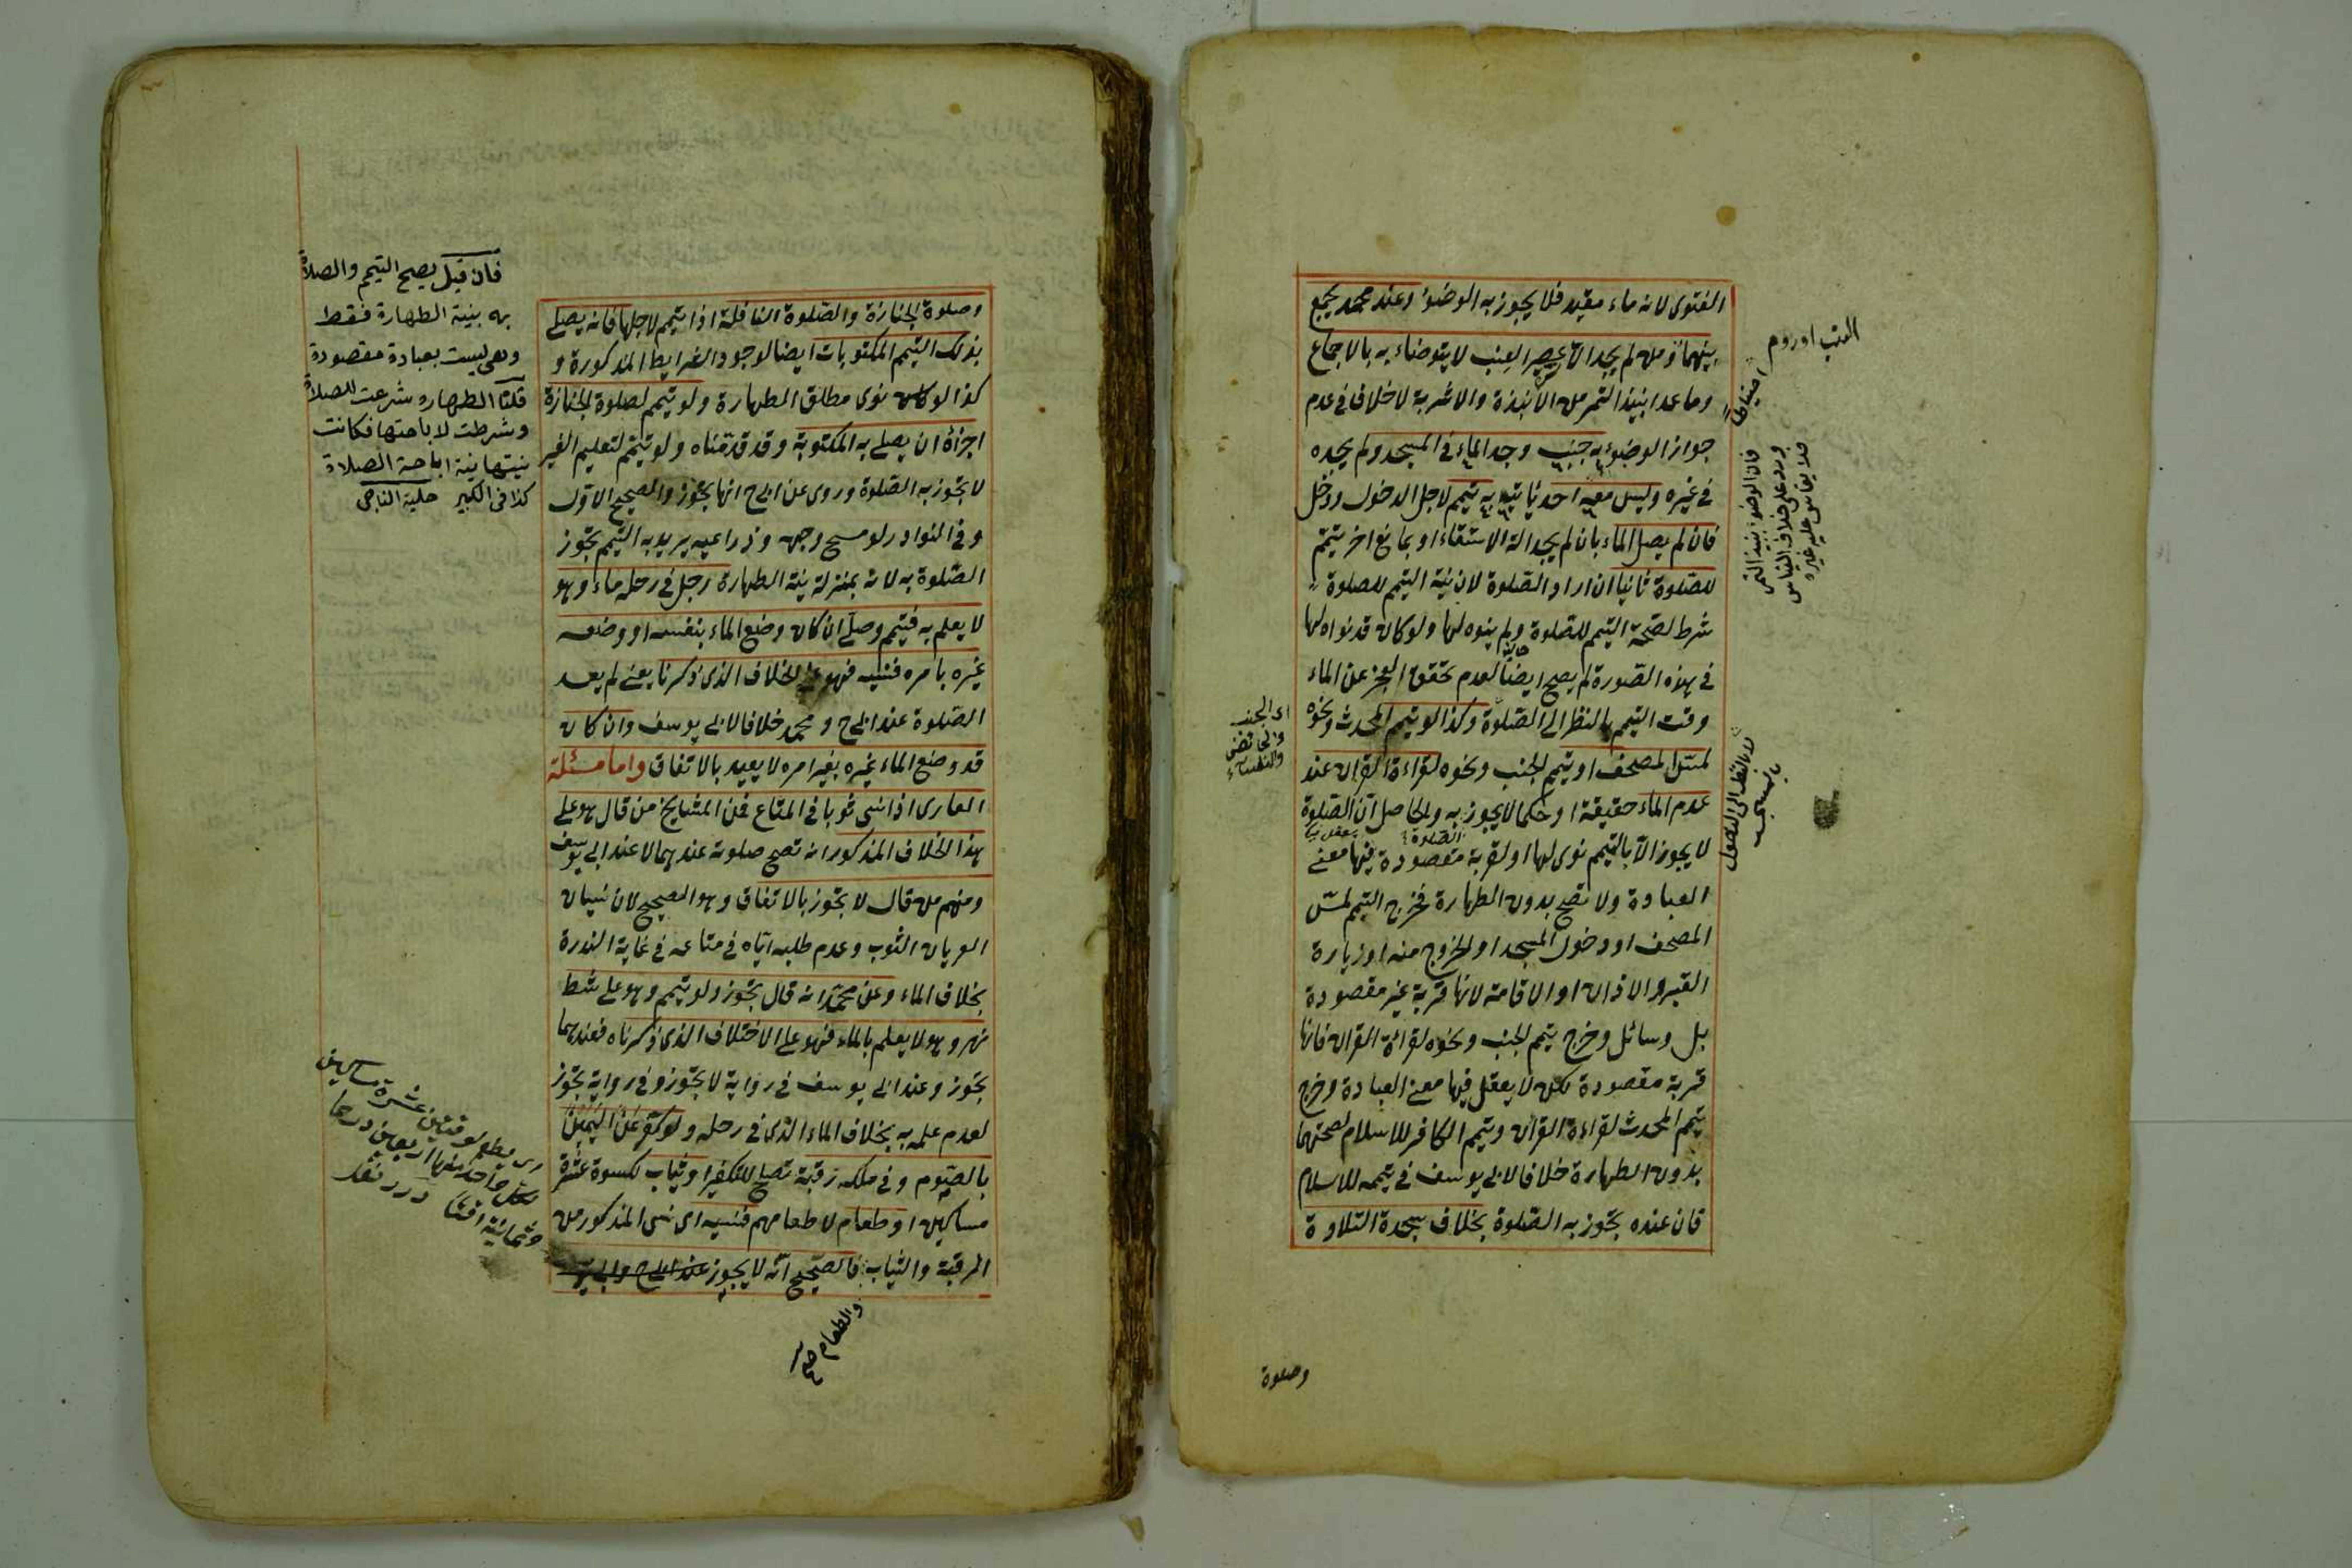 الفتوى لانه ماء مقيد فلا يجوز به الوضوء وعند محمد يجمع
بينهما ومن لم يجد الا عصير العنب لا يتوضاء به بالاجماع
وما عدا نبيذ التمر من الانبذة والاشربة لا خلاف في عدم
جواز الوضوء به جنب وجد الماء في المسجد ولم يجده
في غيره وليس معه احد يأتيه به تيمم لاجل الدخول ودخل
فان لم يصل الماء بان لم يجد الة الاستقاء او بمانع اخر يتيمم
للصلوة ثانيا ان اراد الصلوة لان نية التيمم للصلوة
شرط لصحة التيمم للصلوة ولم ينوه لها ولو كان قد نواه لها
في هذه الصورة لم يصح ايضا لعدم تحقق العجز عن الماء
وقت التيمم بالنظر الى الصلوة وكذا لو تيمم المحدث ونحوه
لمس المصحف او تيمم الجنب ونحوه لقراءة القران عند
عدم الماء حقيقة او حكما لا يجوز به والحاصل ان الصلوة
لا يجوز الا بالتيمم نوى لها او لقربة مقصودة فيها معنى
العبادة ولا تصح بدون الطهارة فخرج التيمم لمس
المصحف او دخول المسجد او الخروج منه او زيارة
القبر والاذان او الاقامة لانها قربة غير مقصودة
بل وسائل وخرج تيمم الجنب ونحوه لقراءة القران فانها
قربة مقصودة لكن لا يعقل فيها معنى العبادة وخرج
تيمم المحدث لقراءة القران وتيمم الكافر للاسلام لصحتهما
بدون الطهارة خلافا لابى يوسف في تيممه للاسلام
فان عنده يجوز به الصلوة بخلاف سجدة التلاوة
فان الوضوء بنبيذ التمر
ورد على خلاف القياس
فلا يقاس عليه غيره
لا بالنظر الى الدخول
بالمسجد
اى الجنب
والحائض
والنفساء
وصلوة
وصلوة الجنازة والصلوة النافلة اذا تيمم لاجلها فانه يصلى
بذلك التيمم المكتوبات ايضا لوجود الشرايط المذكورة و
كذا لو كان نوى مطلق الطهارة ولو تيمم لصلوة الجنازة
اجزأه ان يصلى به المكتوبة وقد قدمناه ولو تيمم لتعليم الغير
لا يجوز به الصلوة وروى عن ابى ح انها يجوز والصحيح الاول
وفي النوادر لو مسح وجهه وذراعيه يريد به التيمم تجوز
الصلوة به لانه بمنزلة نية الطهارة رجل في رحله ماء وهو
لا يعلم به فتيمم وصلى ان كان وضع الماء بنفسه او وضعه
غيره بامره فنسيه فهو على الخلاف الذى ذكرنا يعنى لم يعد
الصلوة عند ابى ح و محمد خلافا لابى يوسف وان كان
قد وضع الماء غيره بغير امره لا يعيد بالاتفاق واما مسئلة
العارى اذا نسى ثوبا في المتاع فمن المشايخ من قال هو على
هذا الخلاف المذكور انه تصح صلوته عندهما لا عند ابى يوسف
ومنهم من قال لا يجوز بالاتفاق وهو الصحيح لان نسيان
العريان الثوب وعدم طلبه اياه في متاعه في غاية الندرة
بخلاف الماء وعن محمد انه قال يجوز ولو تيمم وهو على شط
نهر وهو لا يعلم بالماء فهو على الاختلاف الذى ذكرناه فعندهما
يجوز وعند ابى يوسف في رواية لا يجوز وفي رواية يجوز
لعدم علمه به بخلاف الماء الذى في رحله ولو كفر عن اليمين
بالصوم وفي ملكه رقبة تصلح للتكفير او ثياب لكسوة عشرة
مساكين او طعام لاطعامهم فنسيه اى نسى المذكور من
الرقبة والثياب فالصحيح انه لا يجوز عند ابى ح وابى
والطعام صح
فان قيل يصح التيمم والصلاة
به بنية الطهارة فقط
وهى ليست بعبادة مقصودة
قلنا الطهاره شرعت للصلاة
وشرطت لاباحتها فكانت
نيتها نية اباحة الصلاة
كذا فى الكبير حلية الناجى
عشرة مساكين